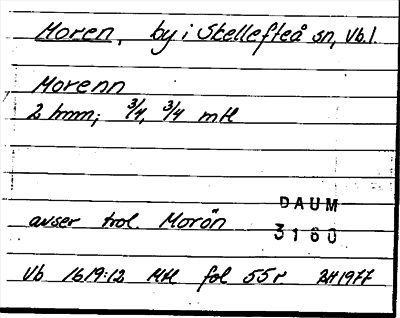 Moren, by i Skellefteå sn, Vb.l.
Morenn
2 hmm; 3/4, 3/4 mtl
DAUM
avser trol. Morön
3160
Vb 1619:12 Mtl fol 55r BH 1977